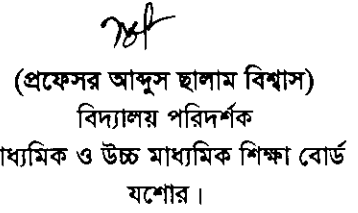 (প্রফেসর আব্দুস ছালাম বিশ্বাস)
বিদ্যালয় পরিদর্শক
াধ্যমিক ও উচ্চ মাধ্যমিক শিক্ষা বোর্ড
যশোর।